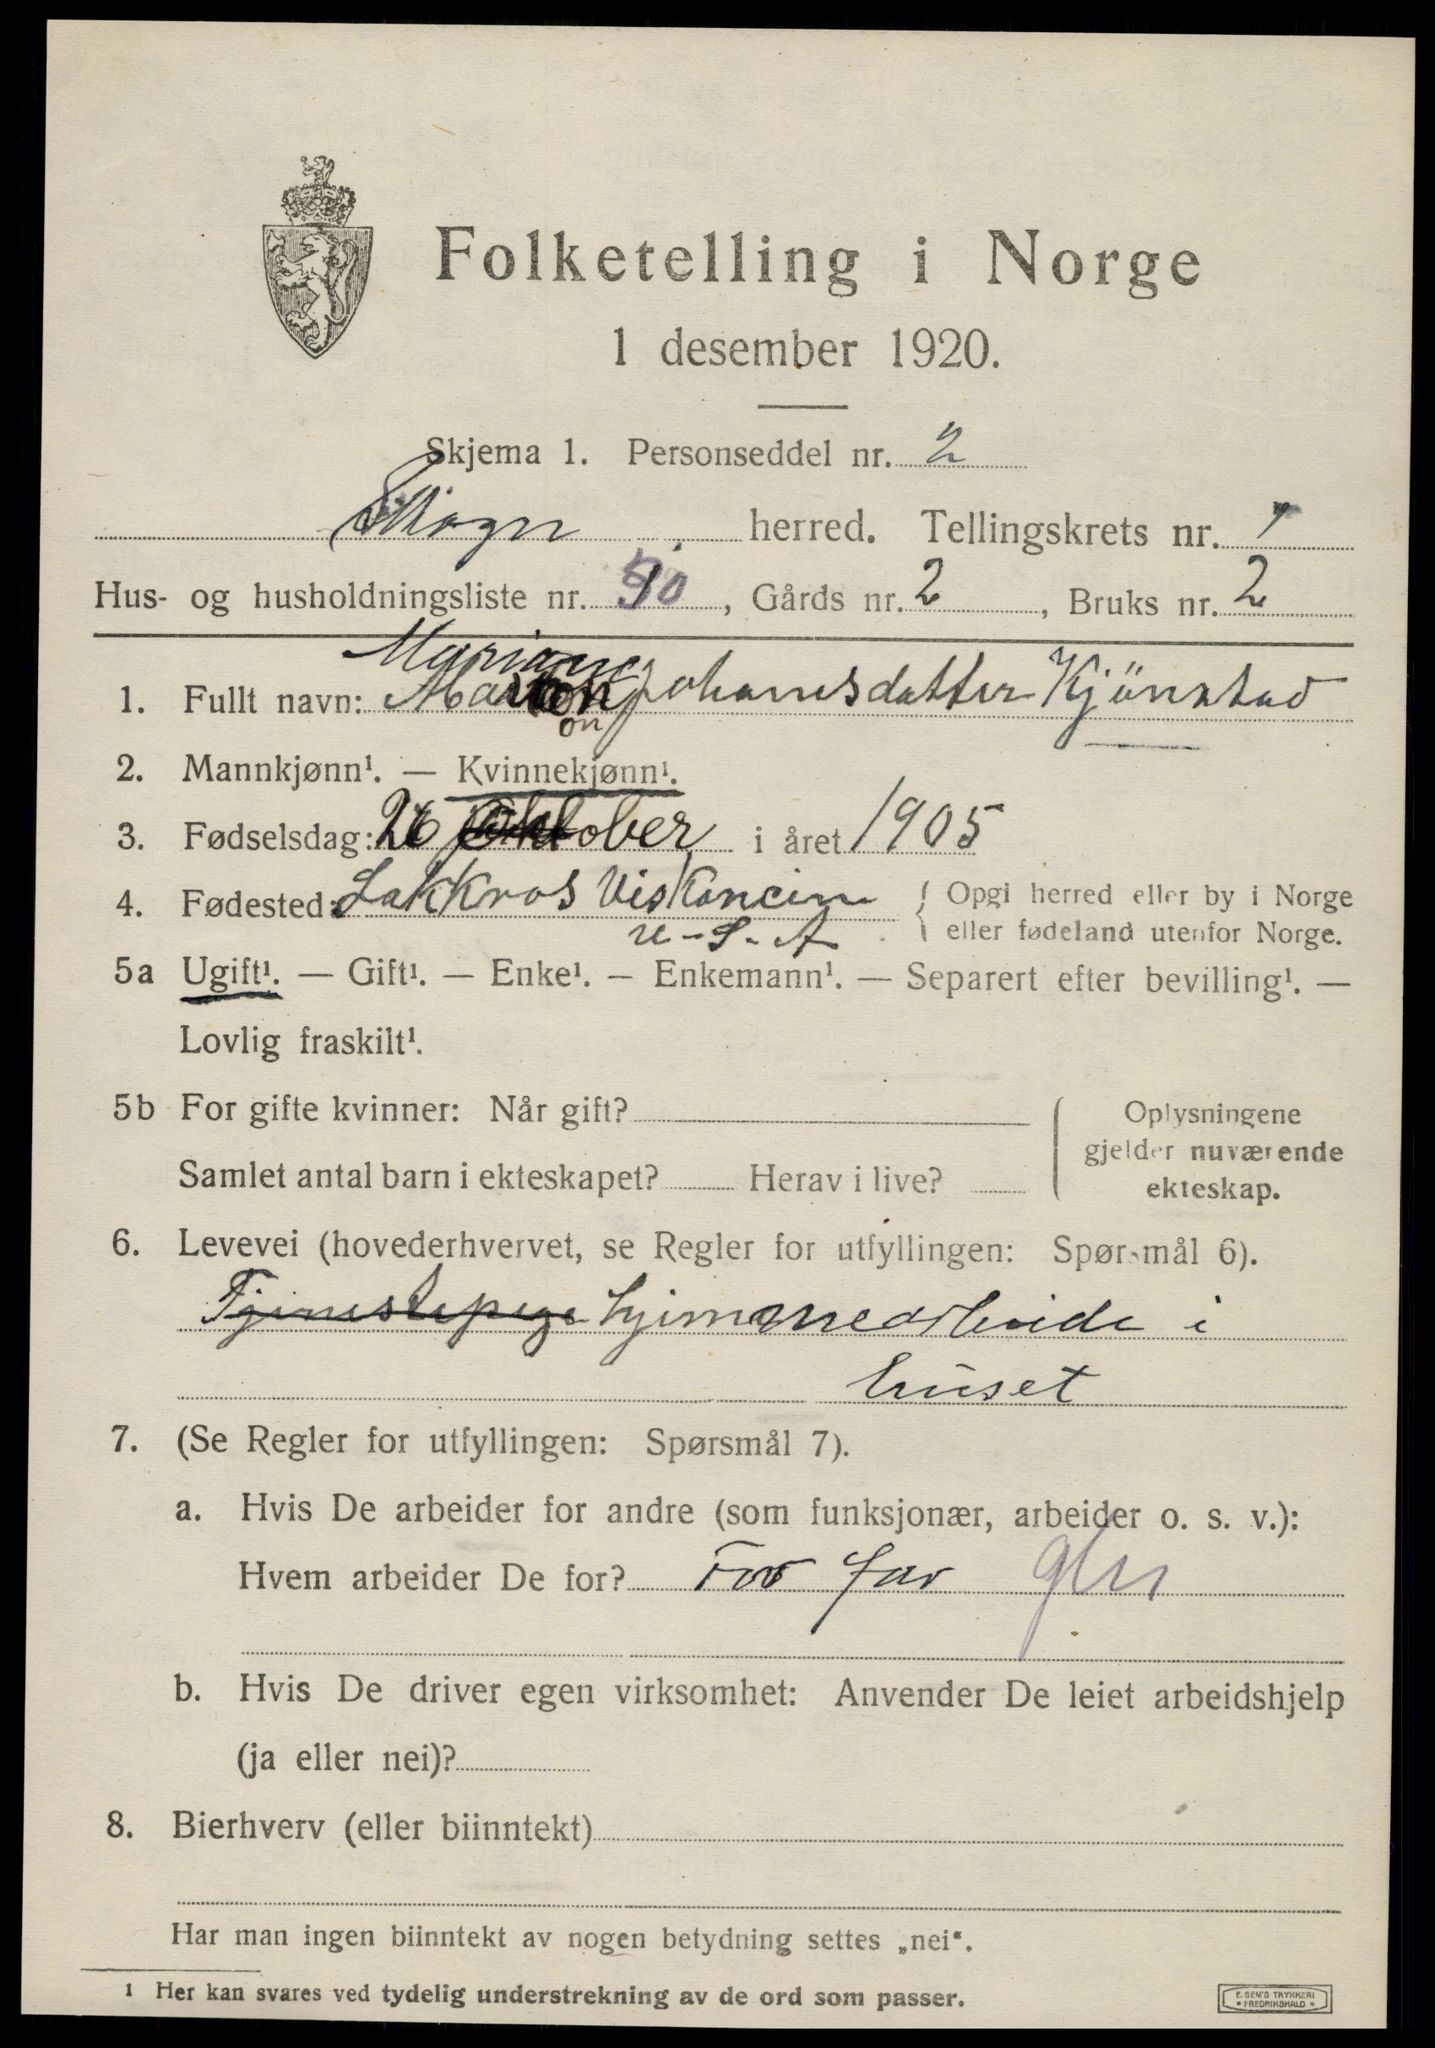 Folketelling i Norge
1 desember 1920.
Skjema 1. Personseddel nr. 2
Skogn herred. Tellingskrets nr. 1
Hus- og husholdningsliste nr. 50, Gårds nr. 2, Bruks nr. 2
Mariane
1. Fullt navn: Marion johansdatter Kjönstad
on
2. Mannkjønn¹. — Kvinnekjønn¹.
3. Fødselsdag: 26 Oktober i året 1905
4. Fødested: Lakkros Viskoncin { Opgi herred eller by i Norge
U-S-A. eller fødeland utenfor Norge.
5a Ugift¹. — Gift¹. — Enke¹. — Enkemann¹. — Separert efter bevilling¹. —
Lovlig fraskilt¹.
5b For gifte kvinner: Når gift? { Oplysningene
gjelder nuværende
Samlet antal barn i ekteskapet? Herav i live? ekteskap.
6. Levevei (hovederhvervet, se Regler for utfyllingen: Spørsmål 6).
hjemmearbeide i
huset
7. (Se Regler for utfyllingen: Spørsmål 7).
a. Hvis De arbeider for andre (som funksjonær, arbeider o. s. v.):
Hvem arbeider De for? For far
b. Hvis De driver egen virksomhet: Anvender De leiet arbeidshjelp
(ja eller nei)?
8. Bierhverv (eller biinntekt)
Har man ingen biinntekt av nogen betydning settes „nei“.
1 Her kan svares ved tydelig understrekning av de ord som passer.
E. SEM'S TRYKKERI
* FREDRIKSHALD *